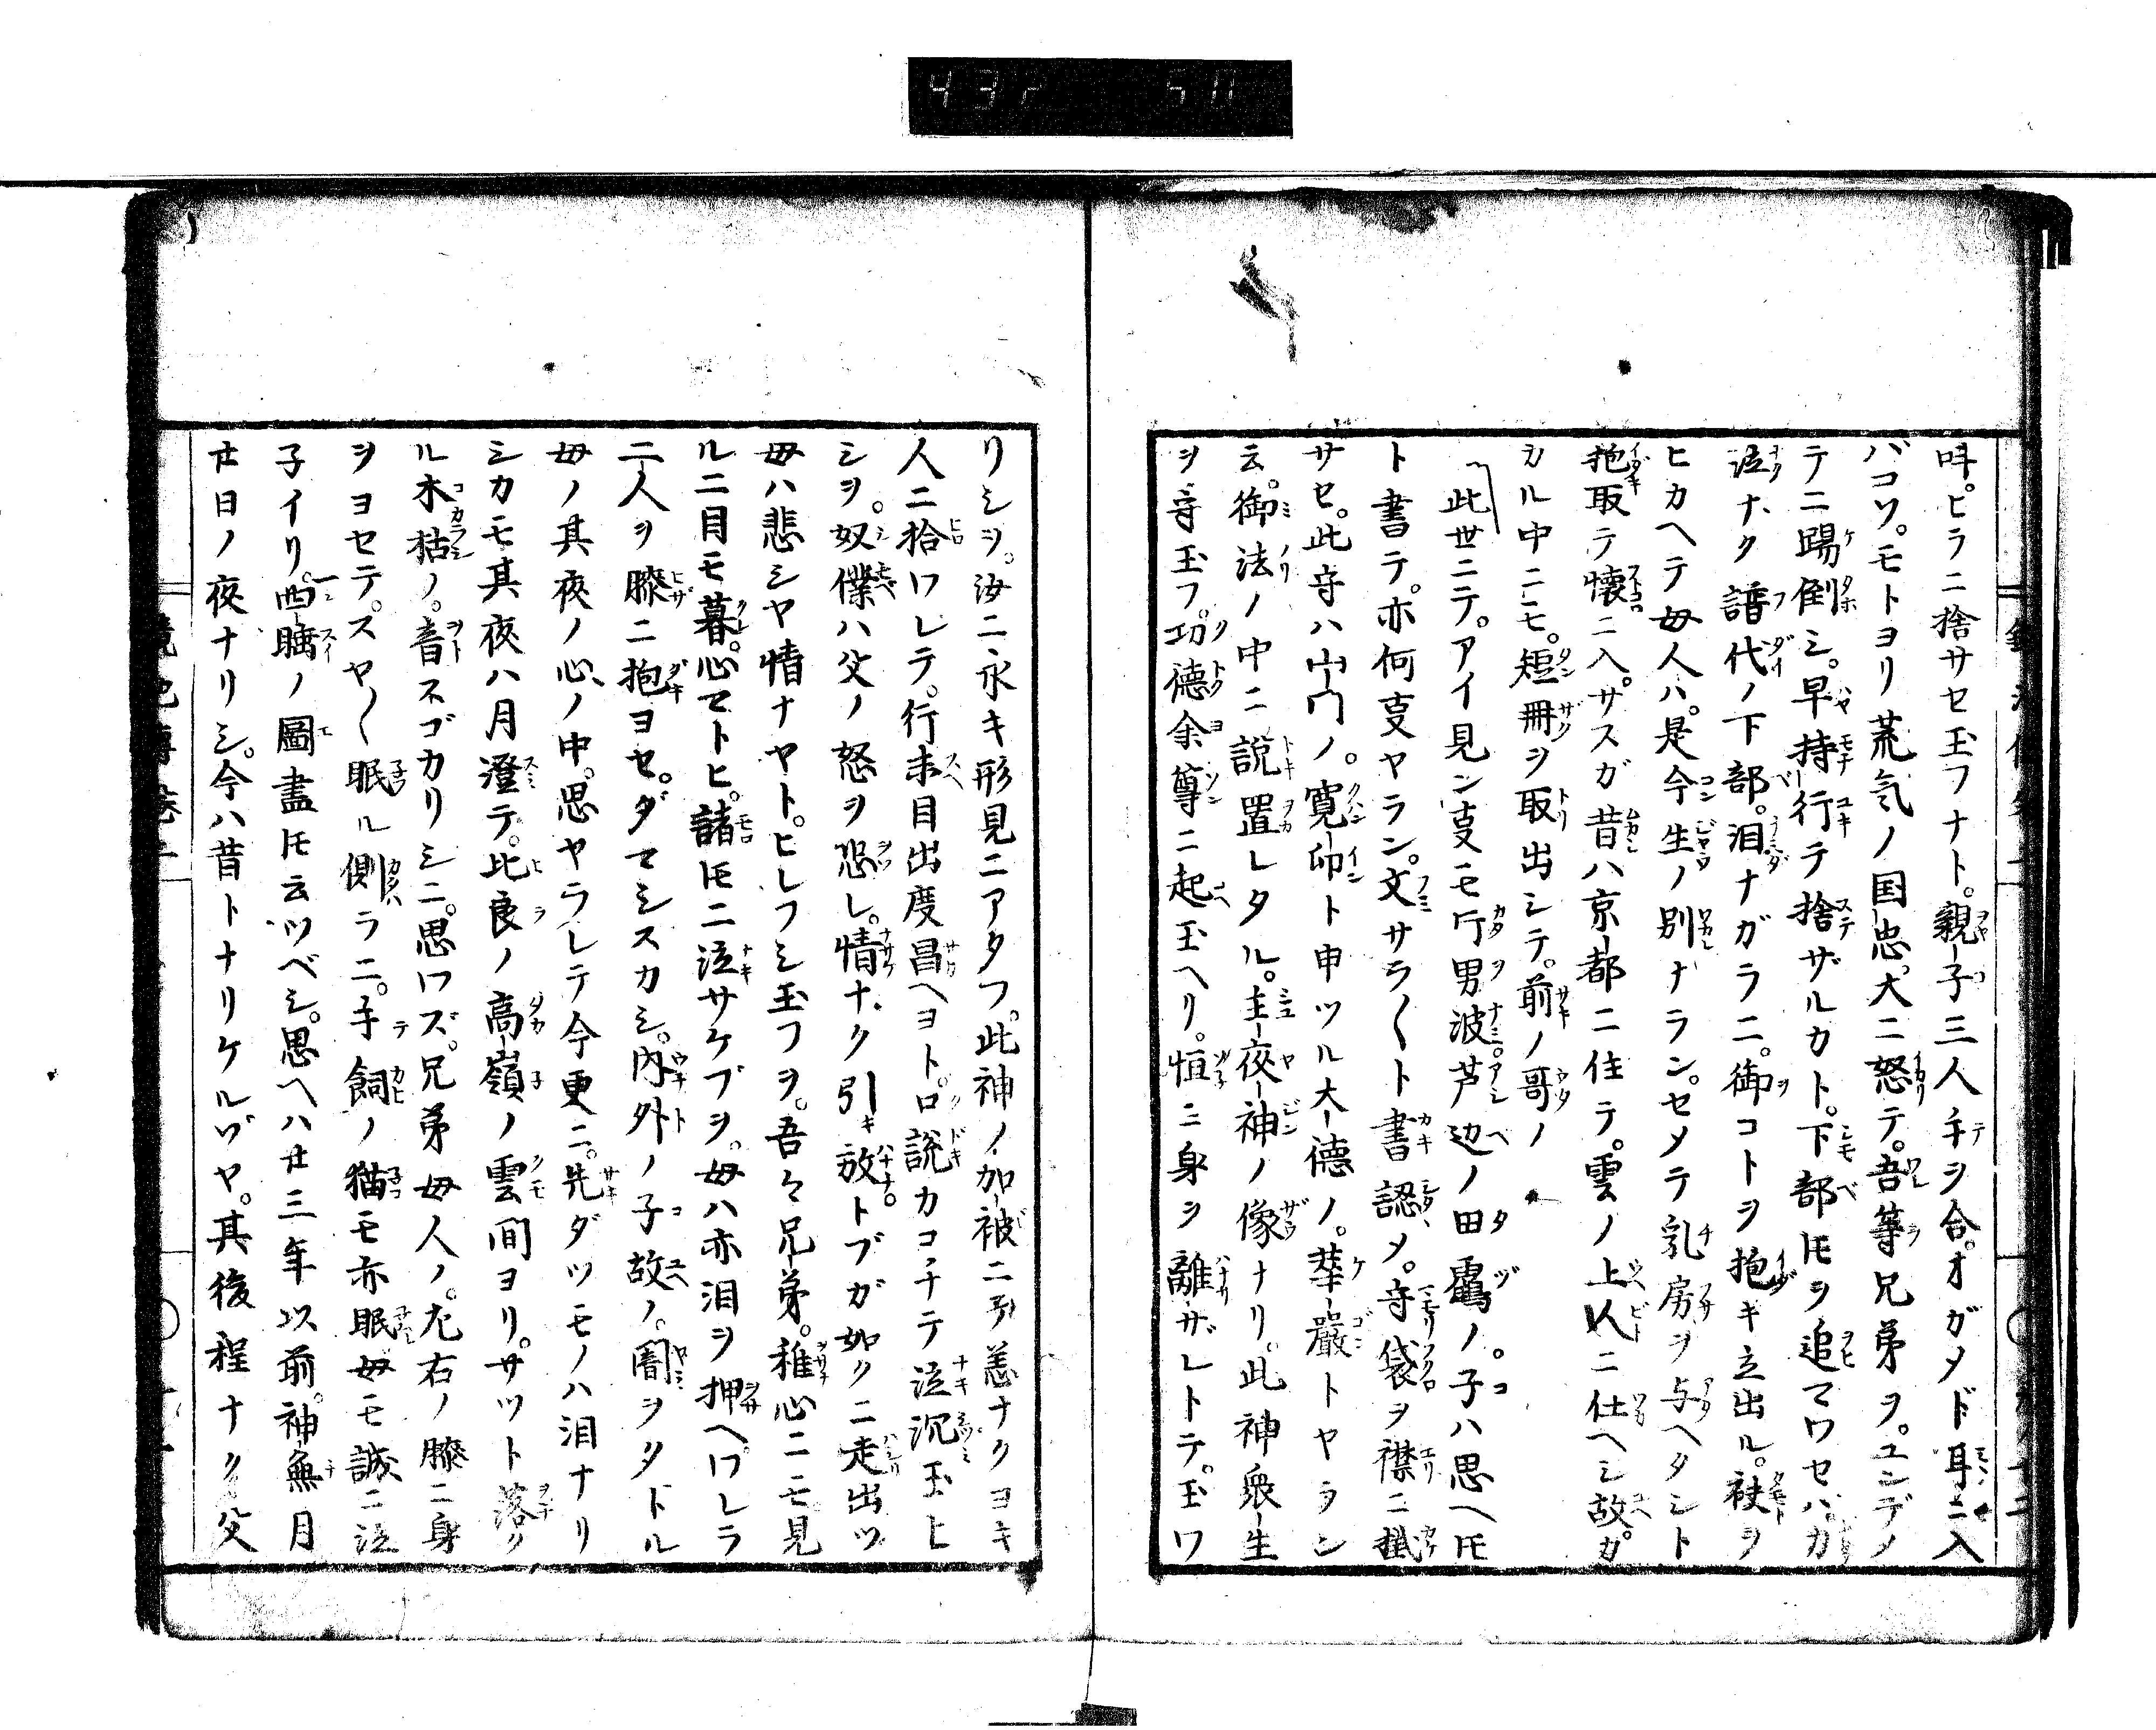 呌。ピラニ捨サセ玉フナト。親子三人手ヲ合。オガメド耳ニ入
バコソ。モトヨリ荒気ノ国忠。大ニ怒テ。吾等兄弟ヲ。ユンデノ
テニ踢倒シ。早持行テ捨ザルカト。下部𪜈ヲ追マワセハ。カ
泣ナク譜代ノ下部。泪ナガラニ。御コトヲ抱キ立出ル。袂ヲ
ヒカヘテ母人ハ。是今生ノ別ナラン。セメテ乳房ヲ与ヘタシト
抱取テ懐ニ入。サスガ昔ハ京都ニ住テ。雲ノ上人ニ仕ヘシ故。カ
カル中ニモ。短冊ヲ取出シテ。前ノ哥ノ
此世ニテ。アイ見ン叓モ斤男波。芦辺ノ田靍ノ。子ハ思ヘ𪜈
ト書テ。亦何叓ヤラン。文サラ〱ト書認メ。守袋ヲ襟ニ掛
サセ。此守ハ山門ノ。寛印ト申ツル大德ノ。華嚴トヤラン
云。御法ノ中ニ説置レタル。主夜神ノ像ナリ。此神衆生
ヲ守玉フ。功德余尊ニ起玉ヘリ。恒ニ身ヲ離ザレトテ。玉ワ
リシヲ。汝ニ永キ形見ニアタフ。此神ノ加被ニ予恙ナクヨキ
人ニ拾ワレテ。行末目出度昌ヘヨト。口説カコチテ泣沉玉ヒ
シヲ。奴僕ハ父ノ怒ヲ恐レ。情ナク引キ放トブガ如クニ走出ツ
母ハ悲シヤ情ナヤト。ヒレフシ玉フヲ。吾々兄弟。稚心ニモ見
ル二目モ暮。心マトヒ。諸𪜈ニ泣サケブヲ。母ハ亦泪ヲ押ヘ。ワレラ
二人ヲ膝ニ抱ヨセ。ダマシスカシ。内外ノ子故ノ。闇ヲタドル
母ノ其夜ノ心ノ中。思ヤラレテ今更ニ。先ダツモノハ泪ナリ
シカモ其夜ハ月澄テ。比良ノ高嶺ノ雲間ヨリ。サツト落ク
ル木枯ノ。音スゴカリシニ。思ワズ。兄弟母人ノ。左右ノ膝ニ身
ヲヨセテ。スヤ〱眠ル側ラニ。手飼ノ猫モ亦眠。母モ誠ニ泣
子イリ。四睡ノ圖畫𪜈云ツベシ。思ヘハ廿三年以前。神無月
廿日ノ夜ナリシ。今ハ昔トナリケルゾヤ。其後程ナク父